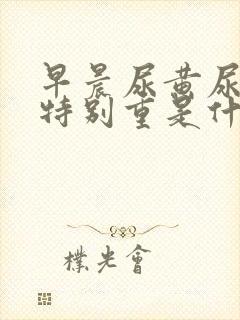 早晨尿黄尿
特别重是什
朴光會